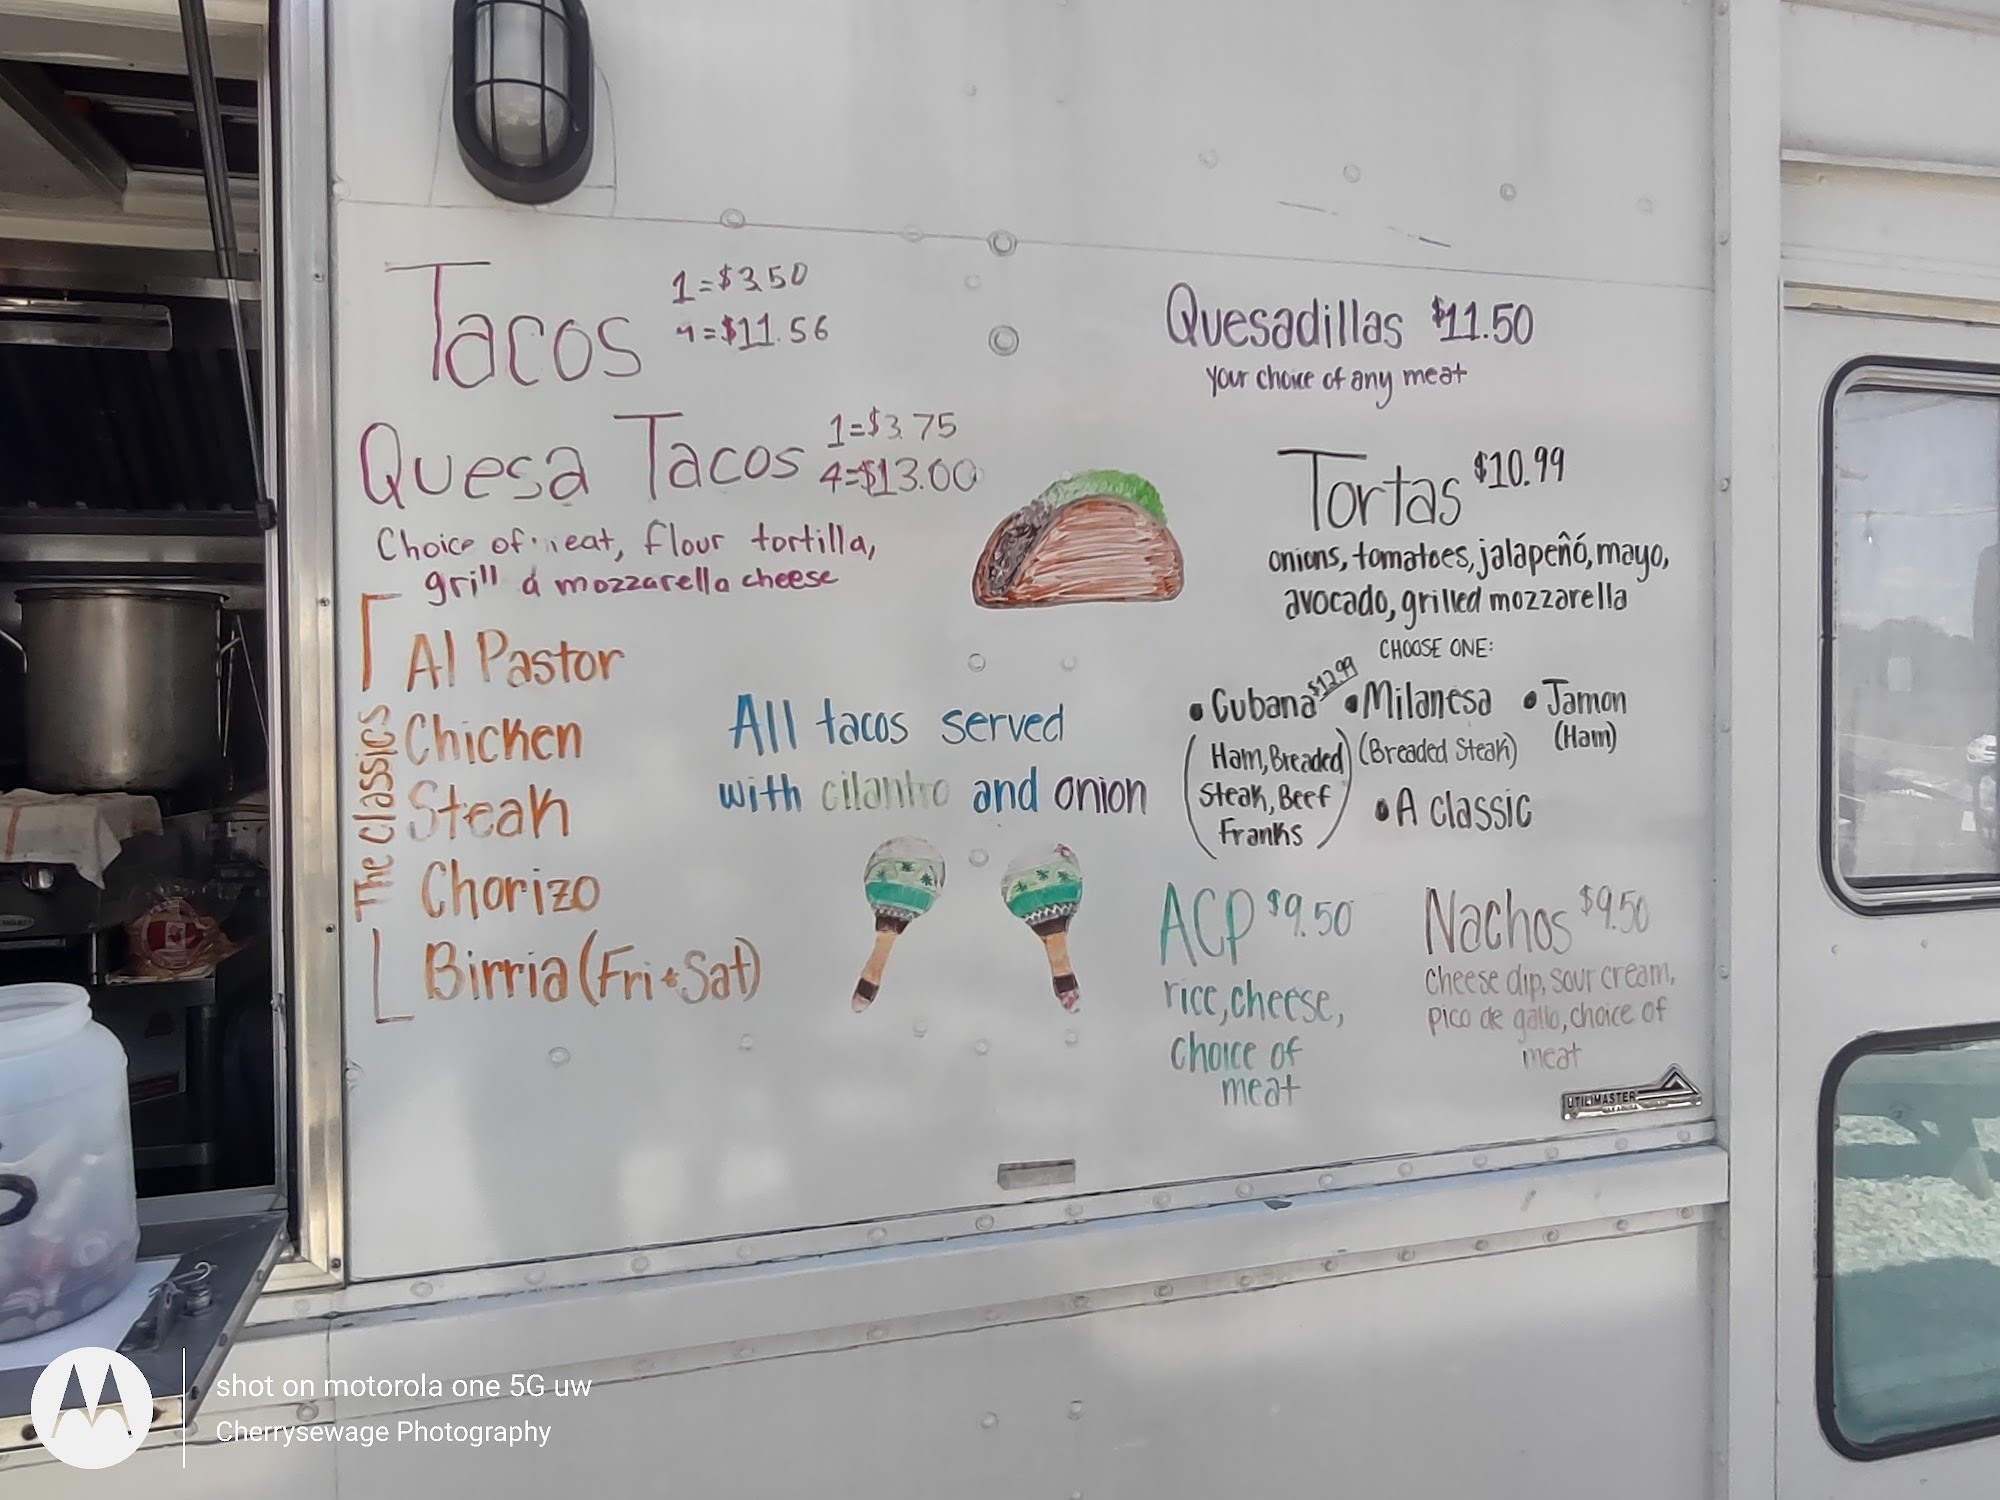 Tacos
1=$3.50
4=$11.56
Quesa Tacos
1=$3.75
4=$13.00
Choice of meat, flour tortilla,
grill d mozzarella cheese
The Classics
Al Pastor
Chicken
Steak
Chorizo
Birria (Fri + Sat)
All tacos served
with cilantro and onion
Quesadillas $11.50
your choice of any meat
Tortas $10.99
onions, tomatoes, jalapeñó, mayo,
avocado, grilled mozzarella
CHOOSE ONE:
• Cubana $12.99 • Milanesa • Jamon
(Ham, Breaded
Steak, Beef
Franks)
(Breaded Steak)
(Ham)
• A classic
ACP $9.50
rice, cheese,
choice of
meat
Nachos $9.50
Cheese dip, sour cream,
pico de gallo, choice of
meat
UTILIMASTER
shot on motorola one 5G uw
Cherrysewage Photography